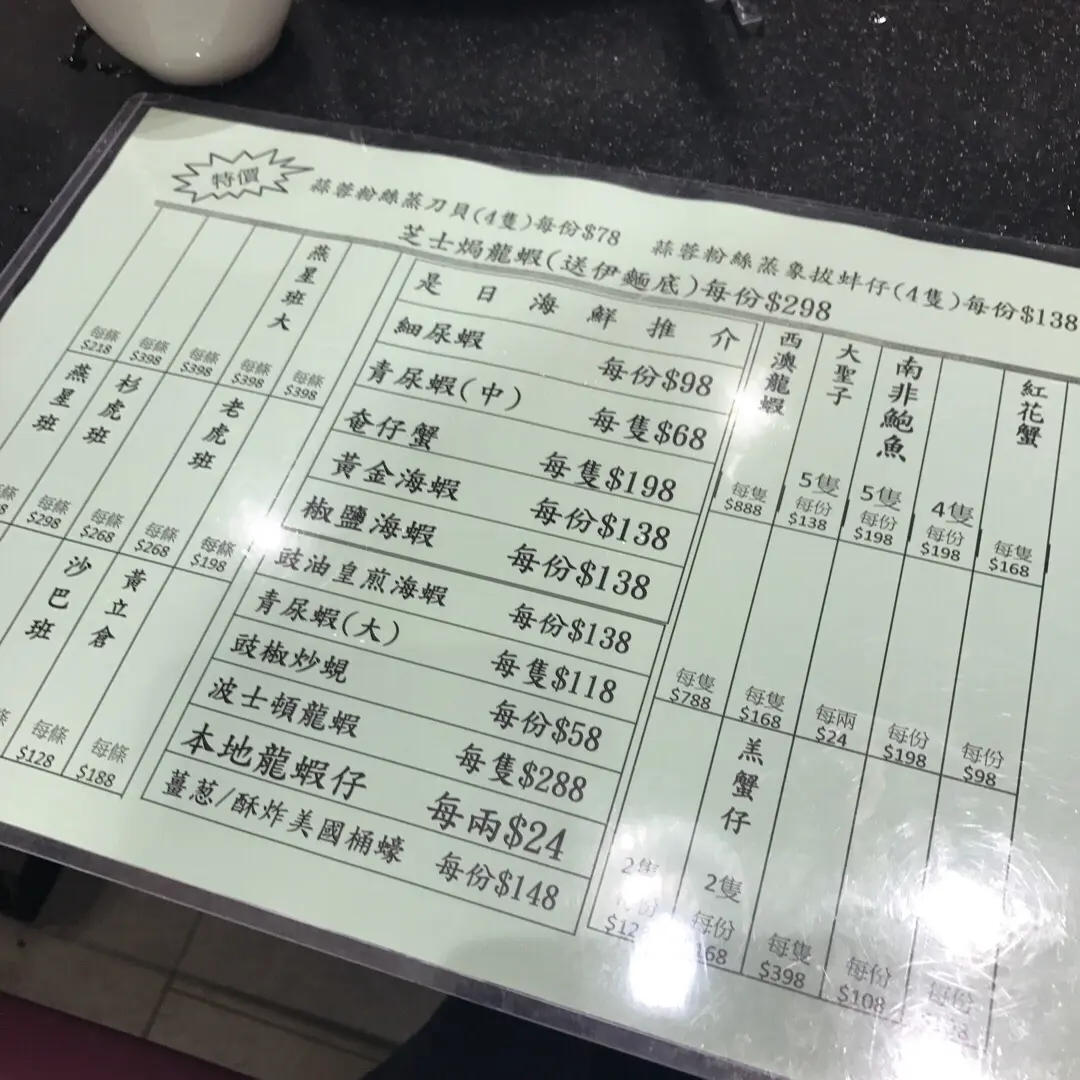 特價
蒜蓉粉絲蒸刀貝(4隻)每份$78
蒜蓉粉絲蒸象拔蚌仔(4隻)每份$138
芝士焗龍蝦(送伊麵底)每份$298
每條 $218
每條 $398
每條 $398
燕星班大 每條 $398
每條 $398
燕星班 每條 $298
杉虎班 每條 $268
每條 $268
老虎班 每條 $198
沙巴班 每條 $128
黃立倉 每條 $188
是日海鮮推介
細尿蝦 每份$98
青尿蝦(中) 每隻$68
奄仔蟹 每隻$198
黃金海蝦 每份$138
椒鹽海蝦 每份$138
豉油皇煎海蝦 每份$138
青尿蝦(大) 每隻$118
豉椒炒蜆 每份$58
波士頓龍蝦 每隻$288
本地龍蝦仔 每兩$24
薑葱/酥炸美國桶蠔 每份$148
西澳龍蝦 每隻 $888
大聖子 5隻 每份 $138
南非鮑魚 5隻 每份 $198
4隻 每份 $198
紅花蟹 每隻 $168
每隻 $788
每隻 $168
每兩 $24
每份 $198
每份 $98
2隻 每份
羔蟹仔 2隻 每份
每隻 $398
每份 $108
每份